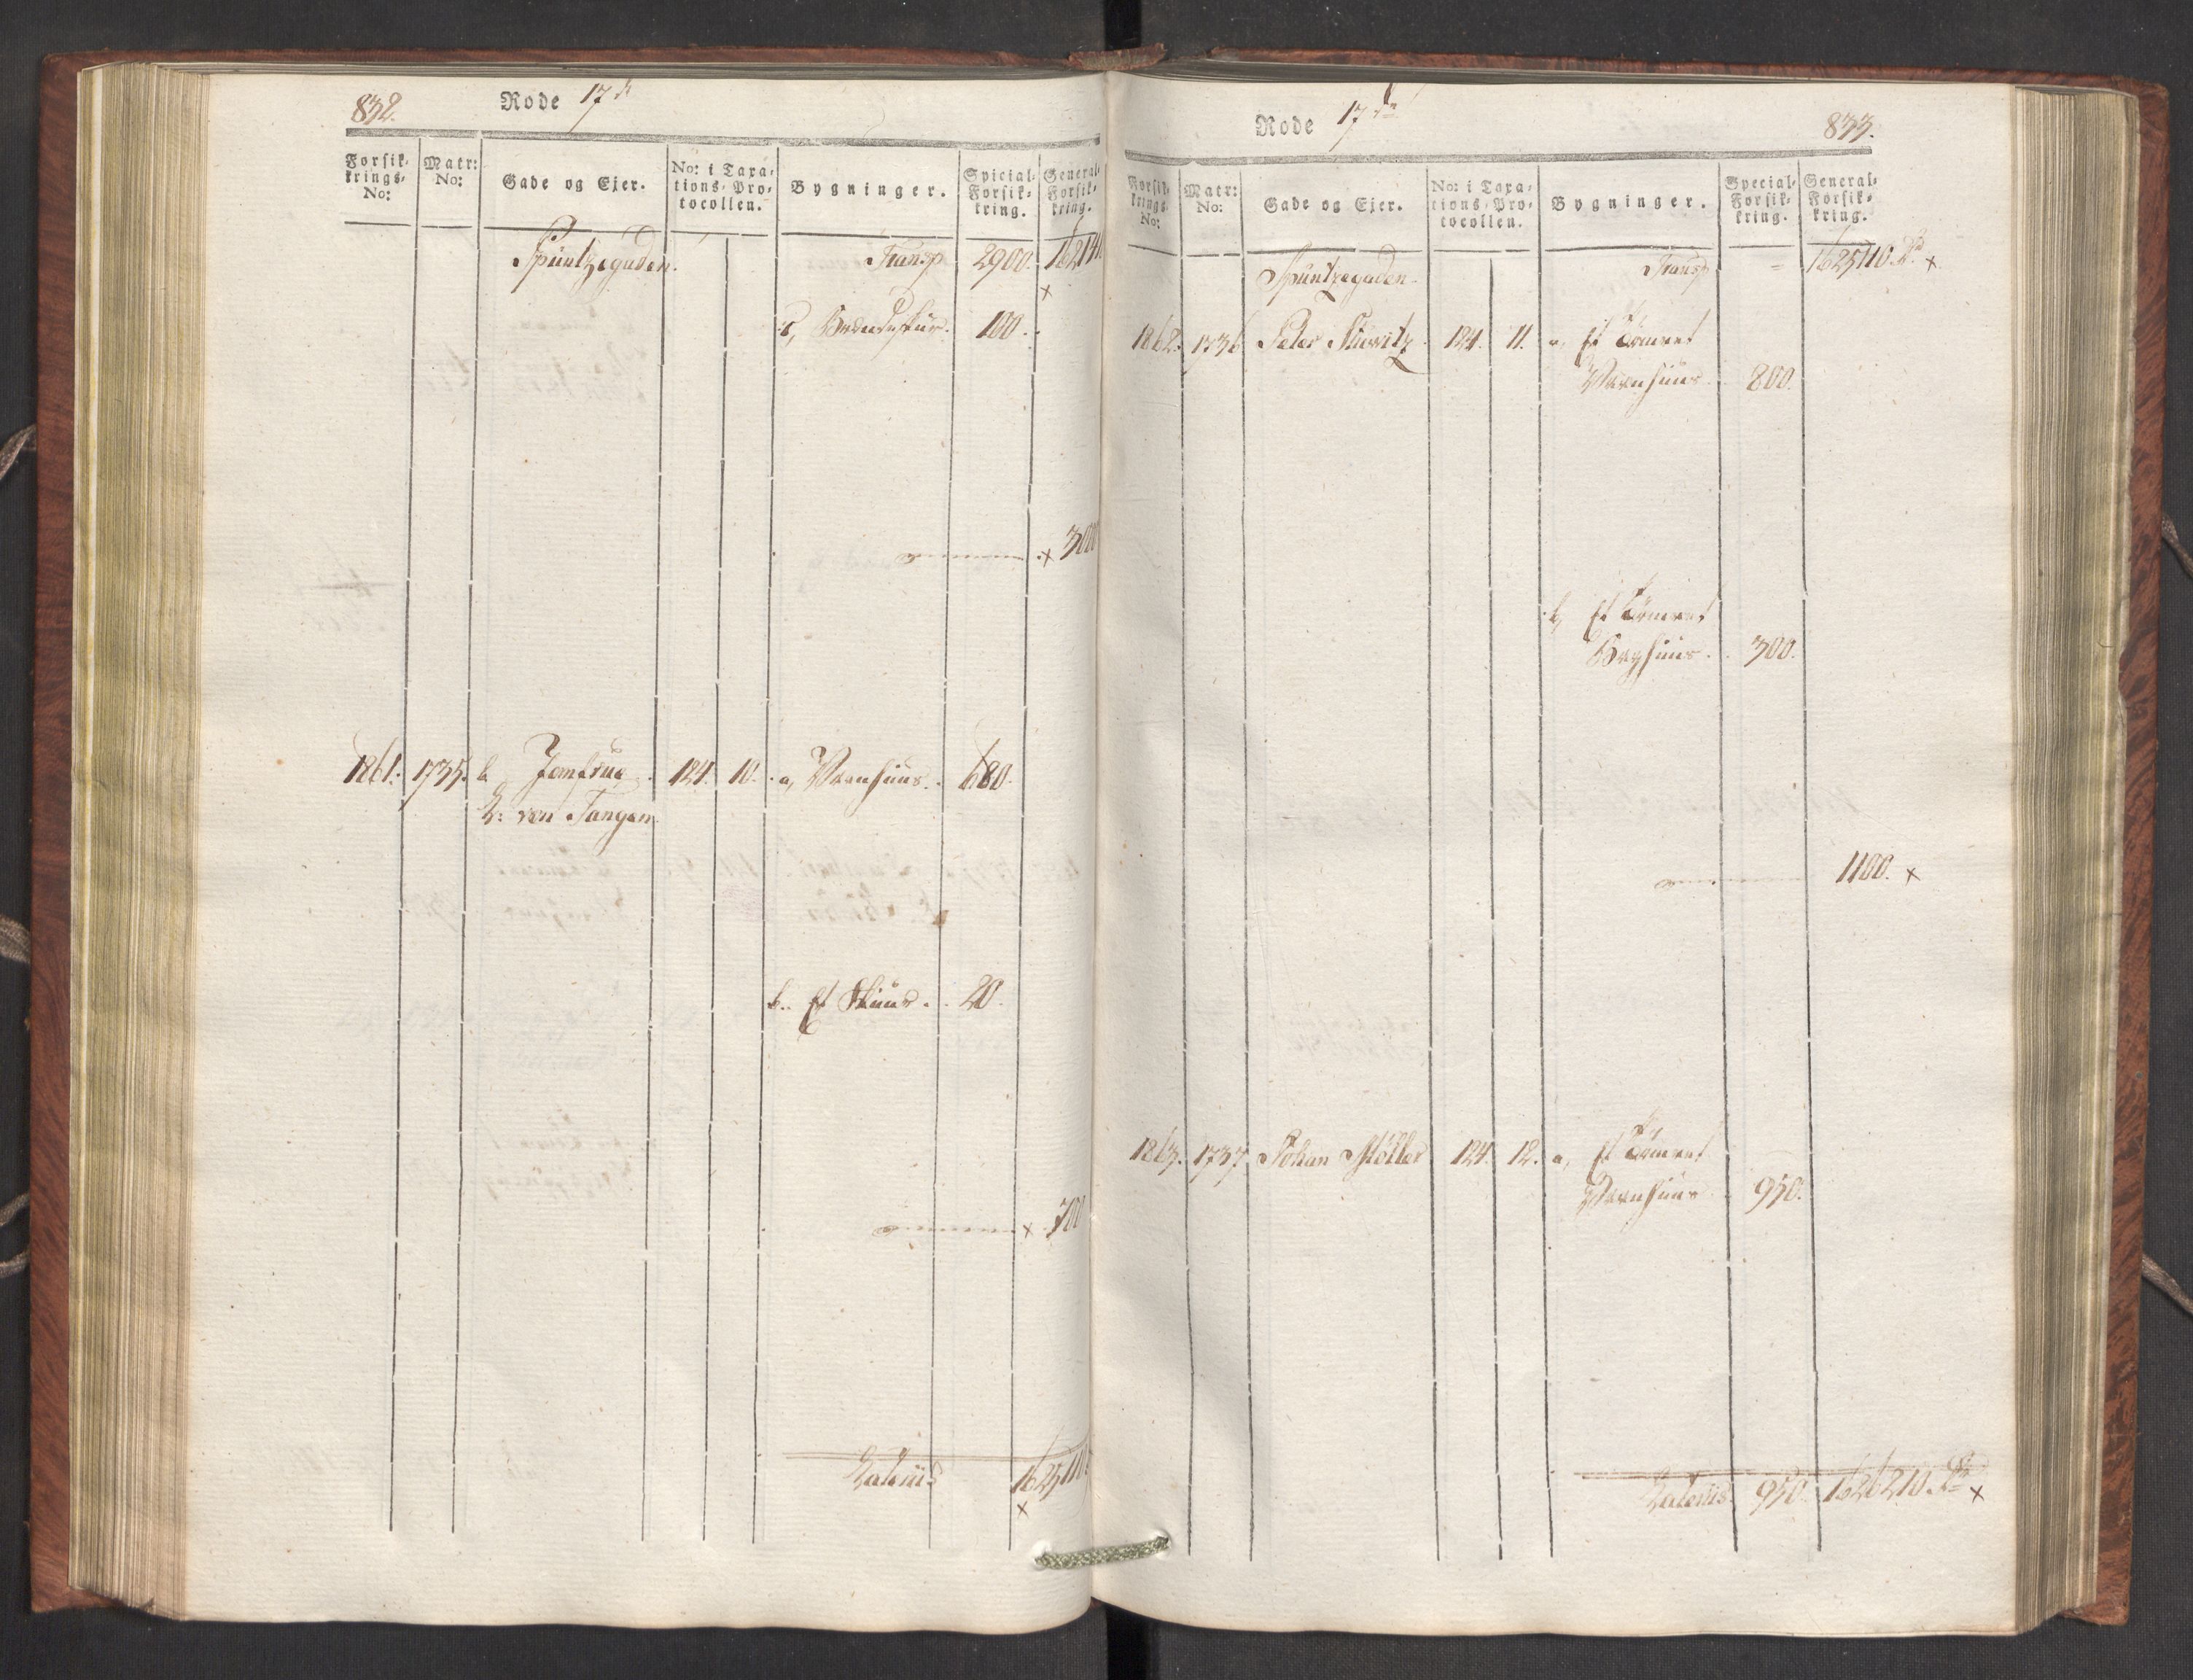 832. Rode 17de
Forsik-krings-No: Matr: No: Gade og Ejer. No: i Taxa-tions-Pro-tocollen. Bygninger. Spicial-Forsik-kring. General-Forsik-kring.
Spüntzegaden. Transp 2900.
c, Brendeskur. 100.
x 3000
1861. 1735. b Jomfrue 124. 10. a, Vaanhuus. 680.
V: von Tangen
b.. Et Skuur. 20.
x 700
Lateriis 1625110
x
Rode 17de 833.
Forsik-krings-No: Matr: No: Gade og Ejer. No: i Taxa-tions-Pro-tocollen. Bygninger. Special-Forsik-kring. General-Forsik-kring.
Spüntzegaden. Transp = 1625110. Rd x
1862. 1736 Peter 124. 11. a, Et Tömret
Vaanhuus. 800.
b, Et Tömret
Bryghuus. 300.
1100. x
1863. 1737 Johan Møller 124. 12. a, Et Tömret
Vaanhuus 950.
Lateriis 950. 1626210. Rd x